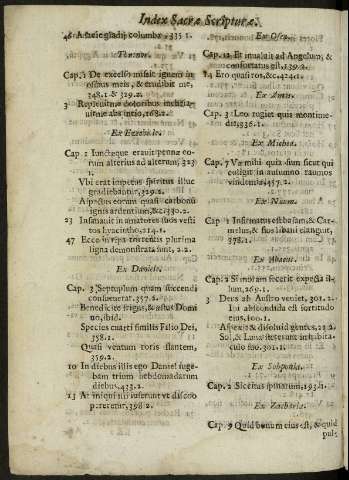 Index Sacræ Scripturæ.
46 A facie gladij columbæ, 335 1.
Threnor.
Cap. 1 De excelso misit ignem in
ossibus meis, & erudibit me,
348.1 & 329.2.
3 Repleuit me doloribus
168.2.
Ex Ezechiele.
Cap. 1 Iunctæque erant pennæ eo-
rum alterius ad alterum, 323
1.
Vbi erat impetus spiritus illuc
gradiebantur, 329.2.
Aspectus eorum quasi carbonũ
ignis ardentium, & c. 330.2.
23 Insaniuit in amatores suos vesti
tos hyacintho, 214.1.
47 Ecce in ripa torrentis plurima
ligna demonstrata sunt, 2.2.
Ex Daniele.
Cap. 3 Septuplum quam succendi
consueuerat. 357.2.
Benedicite frigus, & æstus Domi
no, ibid.
Species quarti similis Filio Dei,
358.1.
Quasi ventum roris flantem,
359.2.
10 In diebus illis ego Daniel luge-
bam trium hebdomadarum
diebus, 433.2.
13 At iniqui iusserunt vt discoo
peretur, 398.2.
Ex Osea.
Cap. 12 Et inualuit ad Angelum, &
confortatus est, 139.2.
14 Ero quasi ros, & c. 424.1.
Ex Amos.
Cap. 3 Leo rugiet quis non time-
bit, 336.1.
Ex Michea.
Cap. 7 Væ mihi quia sum sicut qui
colligit in autumno racemos
vindemiæ, 457.2.
Ex Naum.
Cap. 1 Infirmatus est basan, & Car-
melus, & flos libani elanguit,
378.1.
Ex Abacuc.
Cap. 2 Si moram fecerit expecta il-
lum, 269.1.
3 Deus ab Austro veniet, 301.2.
Ibi abscondita est fortitudo
eius, 100.1.
Aspexit & dissoluit gentes, 23.2.
Sol, & Luna steterunt in habita-
culo suo. 301.1.
Ex Sophonia.
Cap. 2 Siccitas spinarum, 193.1.
Ex Zacharia.
Cap. 9 Quid bonum eius est, & quid
pul-